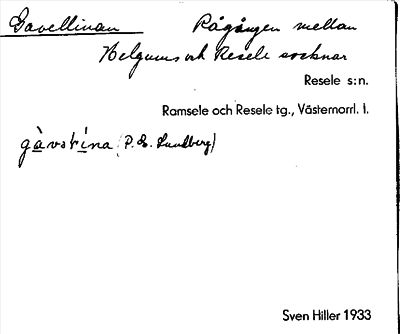 Gavellinan Rågången mellan
Helgums och Resele socknar
Resele s:n.
Ramsele och Resele tg., Västernorrl. l.
(P. E. Sundberg)
Sven Hiller 1933